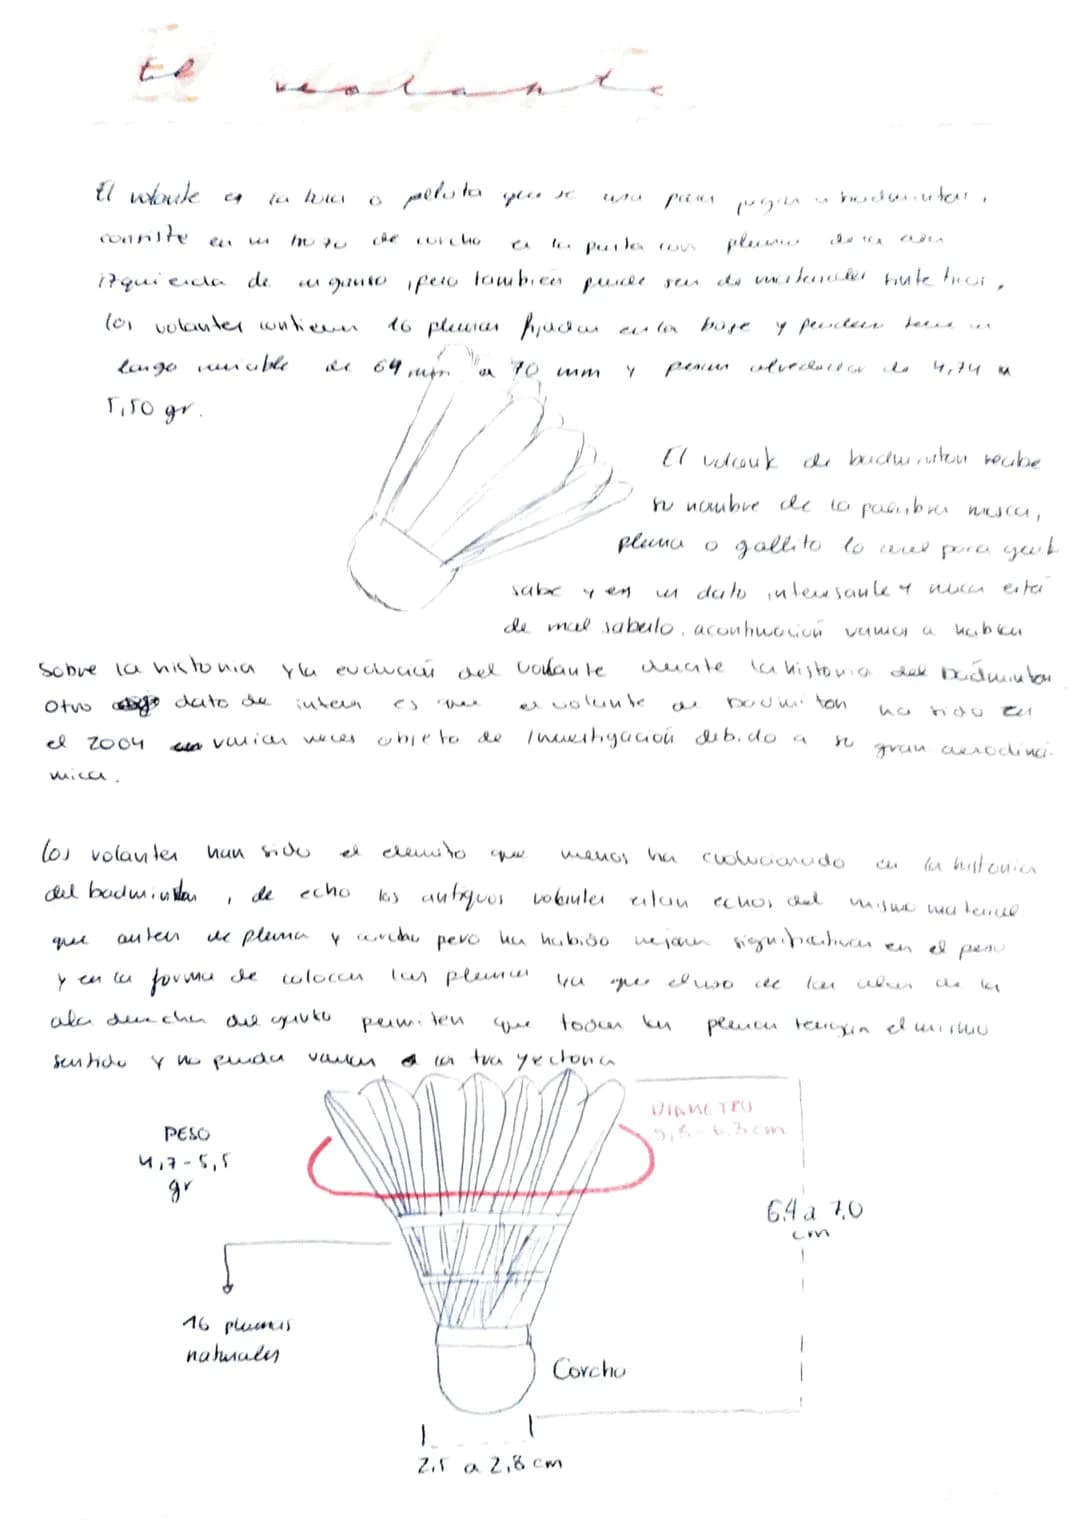 El volante
El volante es la bola o pelota que se usa para jugar a badminton,
consiste en un trozo de corcho en la punta con plumas de la ala
izquierda de un ganso, pero también puede ser de materiales sinteticos,
los volantes contienen 16 plumas fijadas en la base y pueden tener un
largo variable de 64 mm a 70 mm y pesan alrededor de 4,74 a
5,50 gr.
El volante de badminton recibe
su nombre de la palabra mosca,
pluma o gallito lo cual poca gente
sabe y es un dato interesante y nunca está
de mal saberlo. acontinuación vamos a hablar
sobre la historia y la evolución del volante durante la historia del badminton
Otro dato de interes es que el volante de badminton ha sido en
el 2004 varias veces objeto de investigación debido a su gran aerodiná-
mica.
Los volantes han sido el elemento que menos ha evolucionado en la historia
del badminton, de echo los antiguos volantes estan echos del mismo material
que antes de pluma y corcho pero ha habido mejoras significativas en el peso
y en la forma de colocar las plumas ya que el uso de las alas de la
ala derecha del ganso permiten que todas las plumas tengan el mismo
sentido y no pueda variar la trayectoria
DIAMETRO
5,8-6,3 cm
PESO
4,7-5,5
gr
6,4 a 7,0
cm
16 plumas
naturales
Corcho
2,5 a 2,8 cm